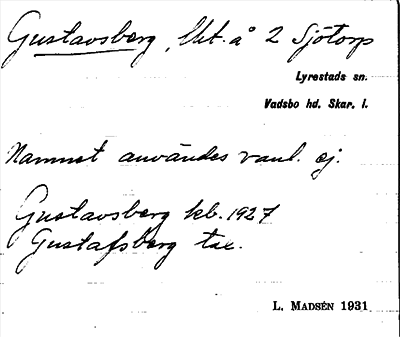 Gustavsberg, lht. å 2 Sjötorp
Lyrestads sn.
Vadsbo hd. Skar. l.
Namnet användes vanl. ej.
Gustavsberg kb. 1927
Gustafsberg tax.
L. MADSÉN 1931